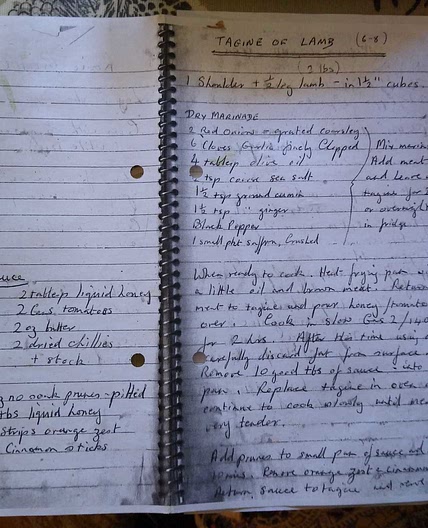 uce
2 tablesp liquid honey
2 tins tomatoes
2 oz butter
2 dried chillies
+ stock
no cook prunes - pitted
tbs liquid honey
strips orange zest
Cinnamon sticks
TAGINE OF LAMB (6-8)
(2 lbs)
1 Shoulder + ½ leg lamb - in 1½" cubes.
DRY MARINADE
2 Red onions grated coarsley
6 Cloves Garlic finely Chpped
4 tablesp olive oil
tsp coarse sea salt
1½ tsp ground cumin
1½ tsp " ginger
Black Pepper
1 small pkt saffron, Crushed
Mix marin
Add meat
and leave
tagine for
or overnight
in fridge
When ready to cook. Heat frying pan
a little oil and brown meat. Return
meat to tagine and pour honey/tomato
over. Cook in slow Gas 2/140
for 2 hrs. After this time using
carefully discard fat from surface
Remove 10 good tbs of sauce into
pan. Replace tagine in oven
continue to cook slowly until mea
very tender.
Add prunes to small pan of sauce
10 mins. Remove orange zest & cinnamon
Return sauce to tagine and serve